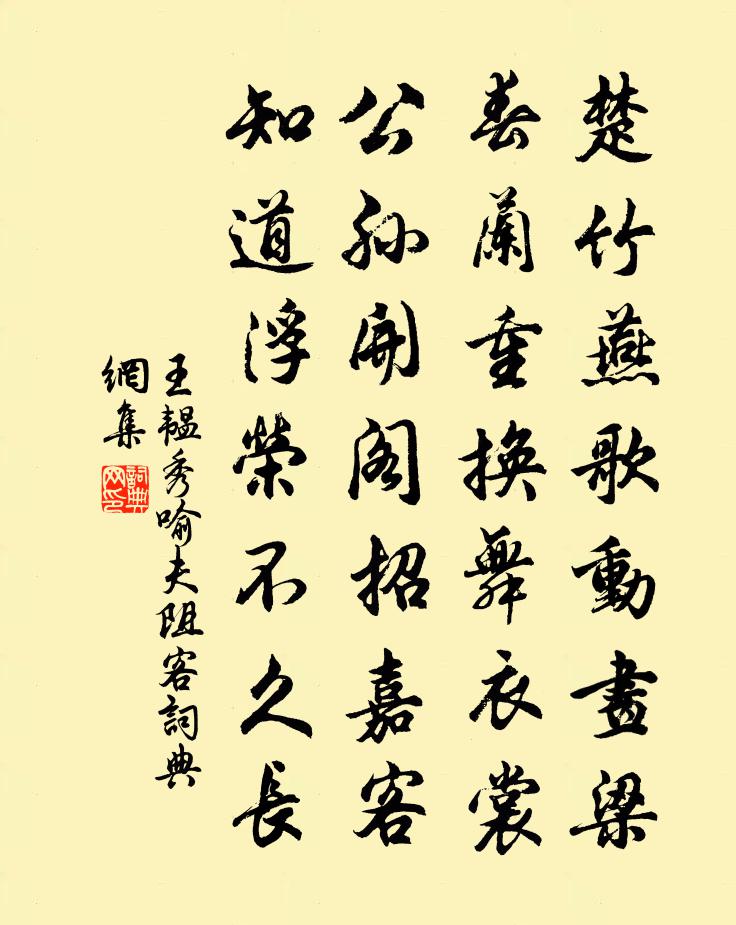 楚竹燕歌動畫梁
春蘭重換舞衣裳
公孫開閣招嘉客
知道浮榮不久長
王韞秀喻夫阻客詞典
網集
詞典
网印